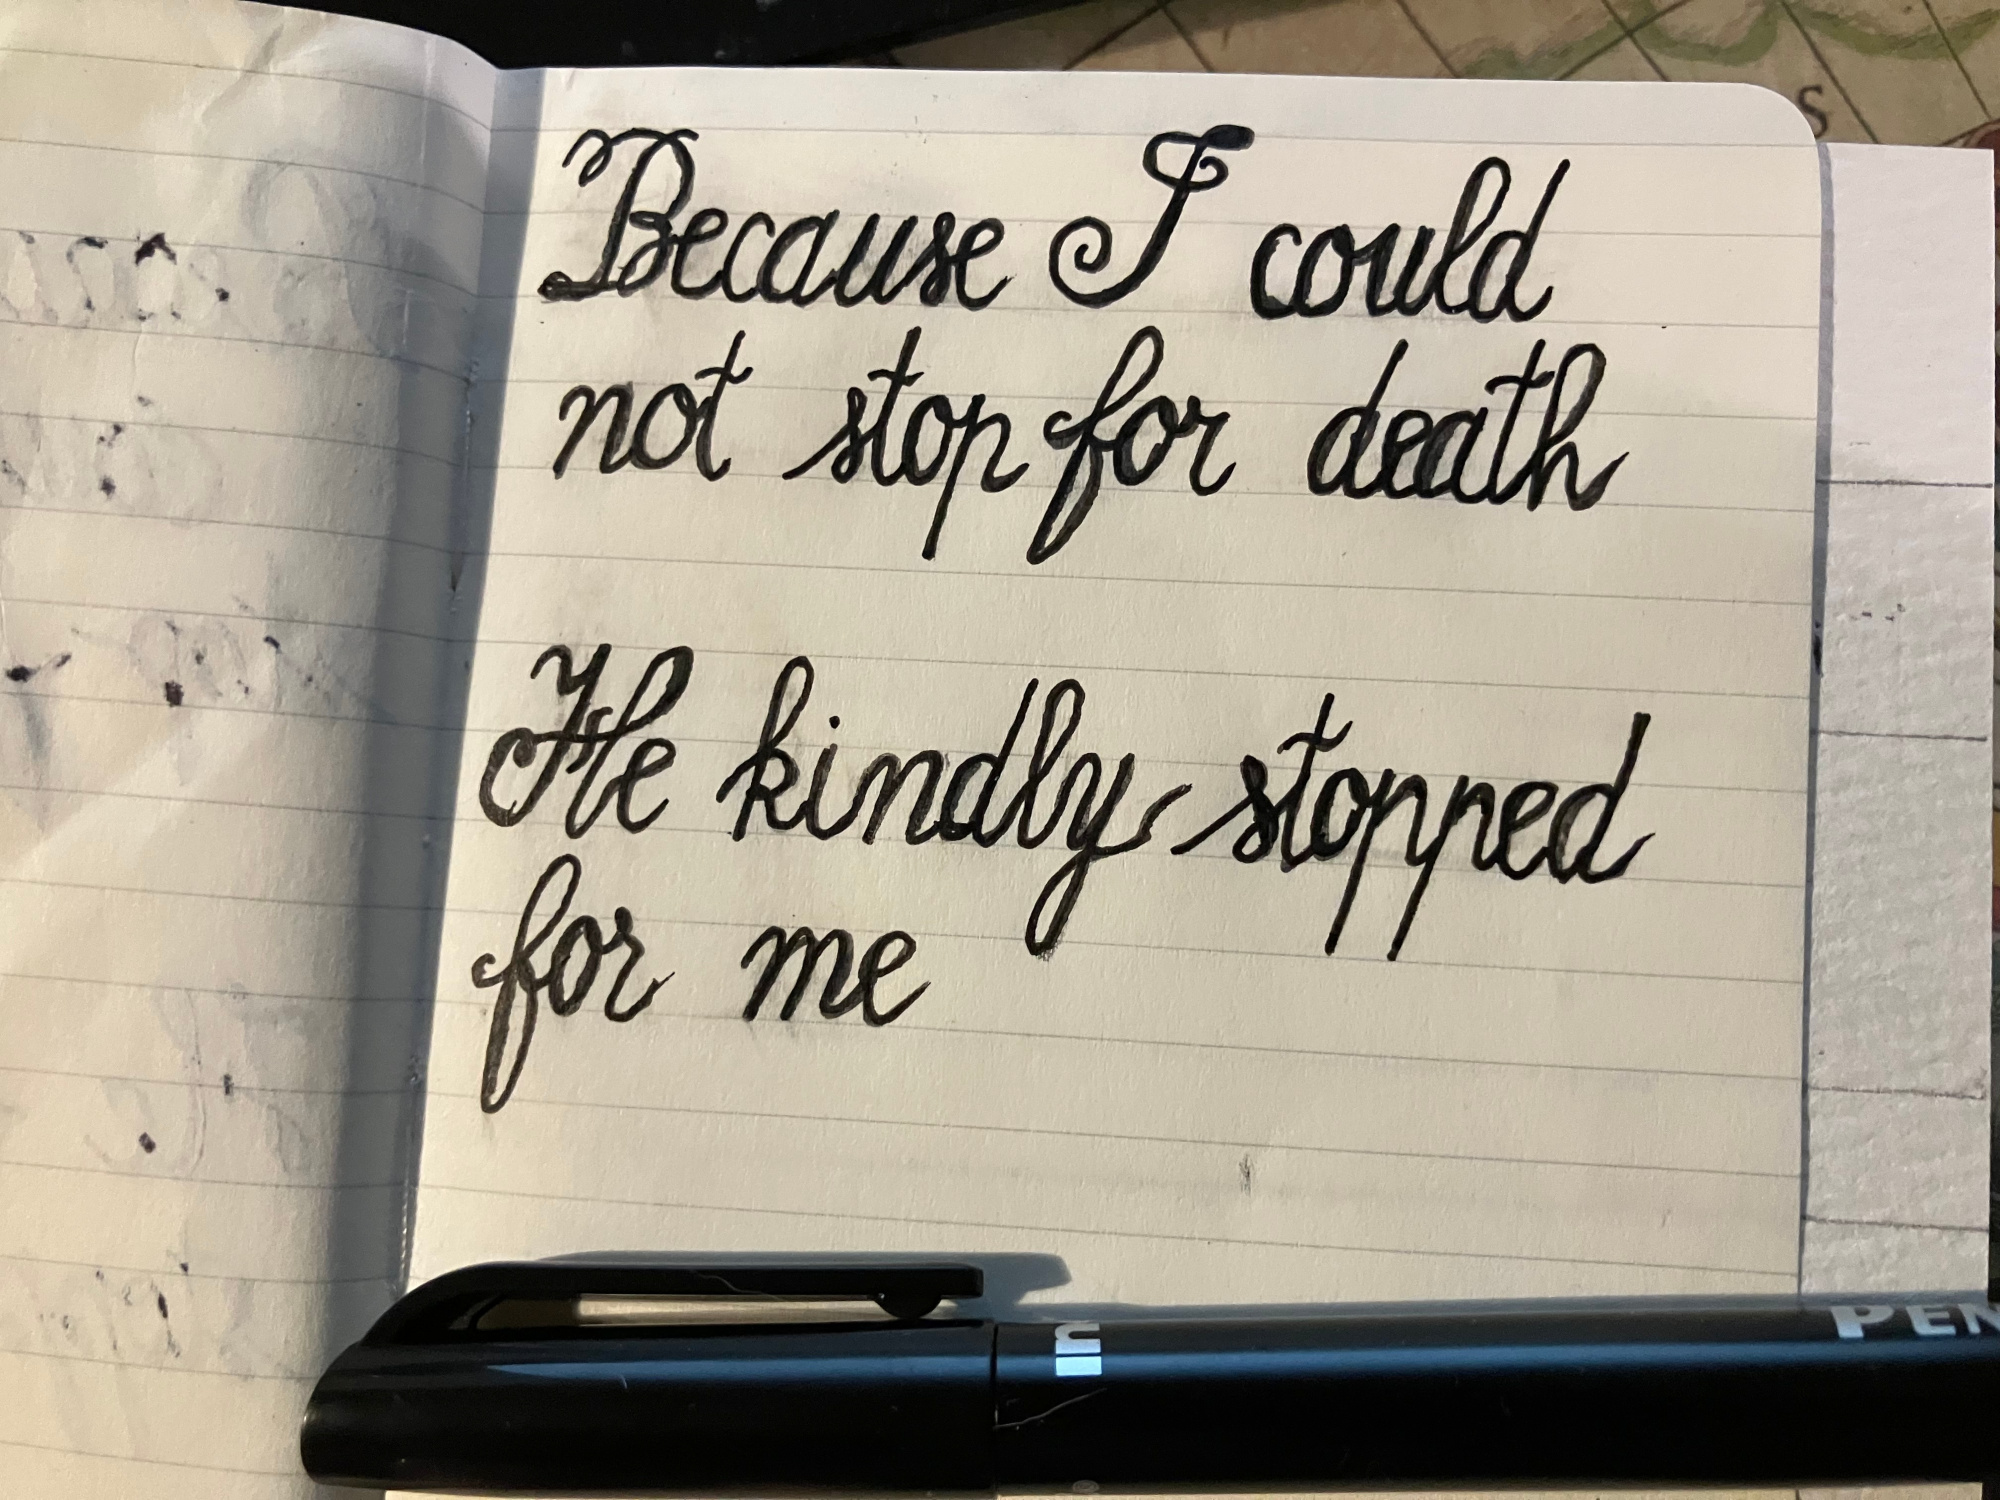 Because I could
not stop for death
He kindly stopped
for me
in
PEN
S